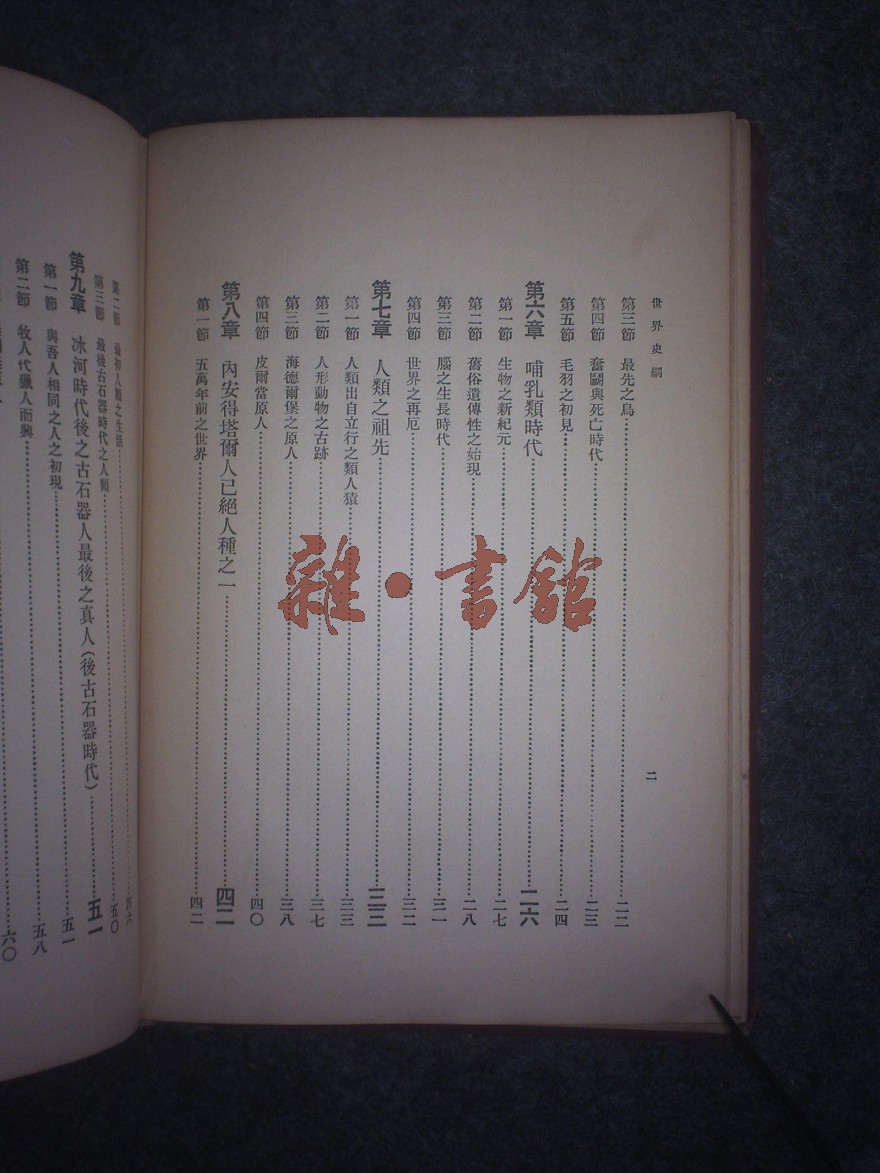 世界史綱
二
第三節 最先之鳥 二二
第四節 奮鬭與死亡時代 二三
第五節 毛羽之初見 二四
第六章 哺乳類時代 二六
第一節 生物之新紀元 二七
第二節 舊俗遺傳性之始現 二八
第三節 腦之生長時代 三一
第四節 世界之再厄 三二
第七章 人類之祖先 三三
第一節 人類出自立行之類人猿 三三
第二節 人形動物之古跡 三七
第三節 海德爾堡之原人 三八
第四節 皮爾當原人 四〇
第八章 內安得塔爾人已絕人種之一 四二
第一節 五萬年前之世界 四二
第二節 最初人類之生活 四六
第三節 最後古石器時代之人類 五〇
第九章 冰河時代後之古石器人最後之真人(後古石器時代) 五一
第一節 與吾人相同之人之初現 五一
第二節 牧人代獵人而興 五八
六〇
雜·書館